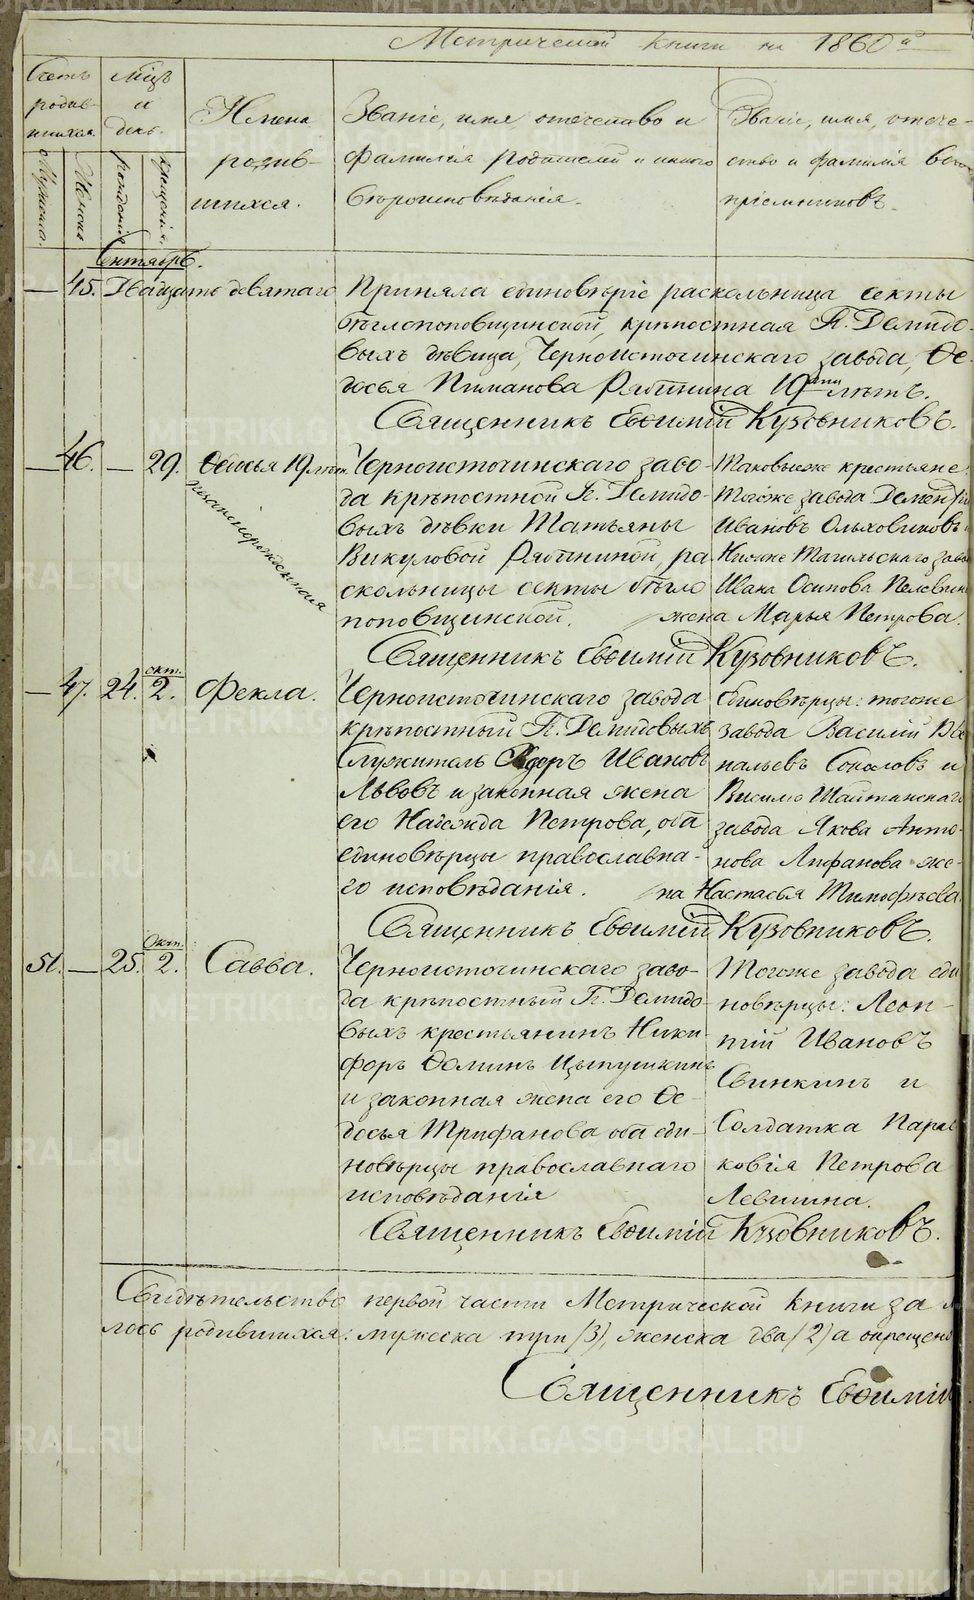 Метрической книги на 1860й
Счетъ родив-шихся.
Мужеска.
Женска
Мѣсяцъ и день.
рожденія
крещенія.
Имена
родив-
шихся.
Званіе, имя отечество и
фамилія родителей и какого
вѣроисповѣданія.
Званіе, имя, отече-
ство и фамилія вос
пріемниковъ.
Сентябрь.
— 45. Двадцать девятаго
Приняла единовѣріе раскольница секты
бѣглопоповщинской, крѣпостная Гг. Демидо-
выхъ дѣвица, Черноисточинскаго завода, Ѳе-
досья Пиманова Рябинина 19ти лѣтъ.
Священникъ Евѳимій Кузовниковъ.
— 46. — 29. Ѳедосья 19 лѣт.
незаконнорожденная
Черноисточинскаго заво-
да крѣпостной Гг. Демидо-
выхъ дѣвки Татьяны
Викуловой Рябининой, ра
скольницы секты бѣгло
поповщинской.
Таковыеже крестьяне
тогоже завода Дементій
Ивановъ Ольховиковъ
Нижне Тагильскаго заво
Ивана Осипова Пелевин
жена Марья Петрова.
Священникъ Евѳимій Кузовниковъ.
— 47. 24. окт. 2. Фекла.
Черноисточинскаго завода
крѣпостный Гг. Демидовыхъ
служитель Ѳедоръ Ивановъ
Львовъ и законная жена
его Надежда Петрова, оба
единовѣрцы православна-
го исповѣданія.
Единовѣрцы: тогоже
завода Василій Ва
пальевъ Соколовъ и
Висимо Шайтанскаго
завода Якова Анто-
нова Лифанова же-
на Настасья Тимофѣева
Священникъ Евѳимій Кузовниковъ.
51. — 25. Окт. 2. Савва.
Черноисточинскаго заво-
да крѣпостный Гг. Демидо-
выхъ крестьянинъ Ники-
форъ Ѳоминъ Цыпушкинъ
и законная жена его Ѳе-
досья Трифанова оба еди-
новѣрцы православнаго
исповѣданія
Тогоже завода еди
новѣрцы: Леон-
тій Ивановъ
Свинкинъ и
Солдатка Парас
ковія Петрова
Левшина.
Священникъ Евѳимій Кузовниковъ.
Свидѣтельство первой части Метрической книги за
лось родившихся: мужеска три (3), женска два (2) а окрещено
Священникъ Евѳимій
METRIKI.GASO-URAL.RU